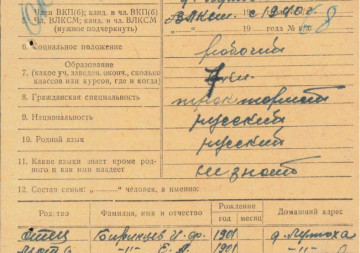 Член ВКП(б); канд. в чл. ВКП(б)
Член ВЛКСМ; канд. в чл. ВЛКСМ ВЛКСМ с 1940 г.
(нужное подчеркнуть) 19 г. № 8
6. Социальное положение рабочий
Образование
7. (какое уч. заведен. оконч., сколько 7 кл.
классов или курсов, где и когда)
8. Гражданская специальность тракторист
9. Национальность русский
10. Родной язык русский
11. Какие языки знает кроме родного и как ими владеет не знает
12. Состав семьи: „ “ человек, а именно:
Родство Фамилия, имя и отчество Рождение Домашний адрес
год месяц
отец И. Ф. 1901 д.
мать -"- Е. А. 1901 -"-